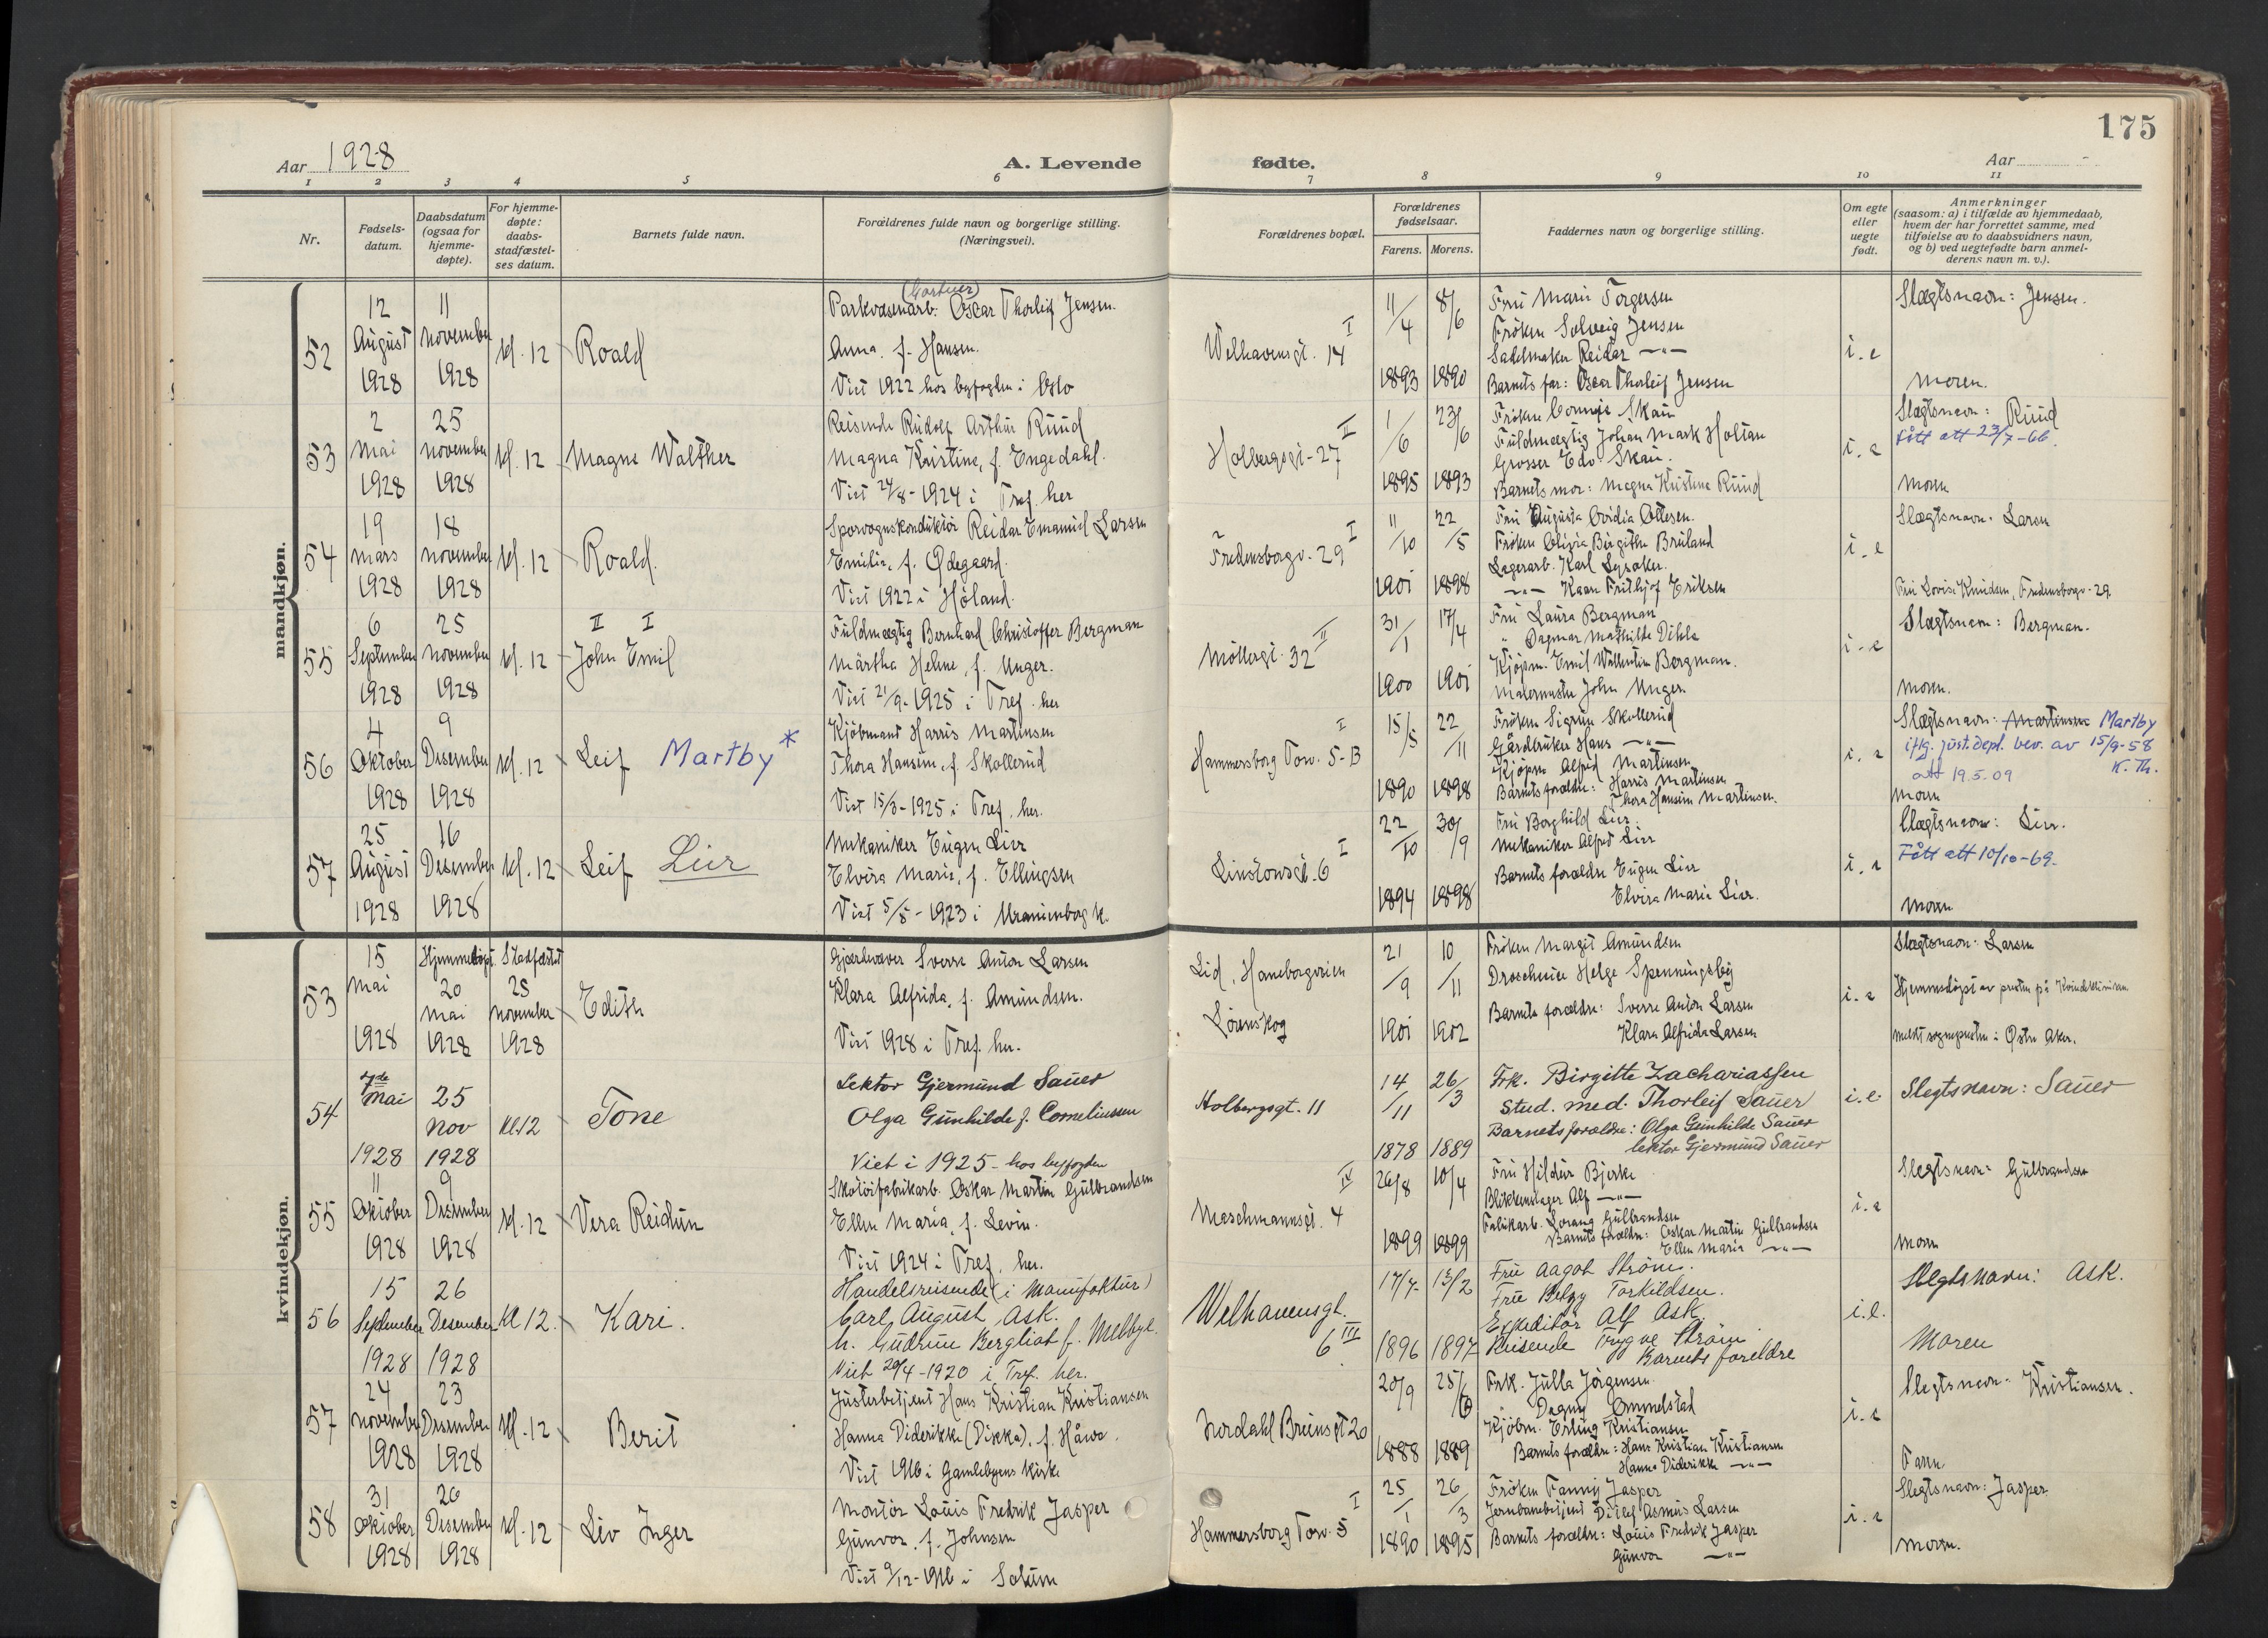 175
Aar 1928
A. Levende fødte.
Aar
1 2 3 4 5 6 7 8 9 10 11
Nr.
Fødsels-
datum.
Daabsdatum
(ogsaa for
hjemme-
døpte).
For hjemme-
døpte:
daabs-
stadfæstel-
ses datum.
Barnets fulde navn.
Forældrenes fulde navn og borgerlige stilling.
(Næringsvei).
Forældrenes bopæl.
Forældrenes
fødselsaar.
Farens. Morens.
Faddernes navn og borgerlige stilling.
Om egte
eller
uegte
født.
Anmerkninger
(saasom: a) i tilfælde av hjemmedaab,
hvem der har forrettet samme, med
tilføielse av to daabsvidners navn,
og b) ved uegtefødte barn anmel-
derens navn m. v.).
mandkjøn.
52
12
August
1928
11
november
1928
kl. 12
Roald
(Gartner)
Parkvæsenarb. Oscar Thorleif Jensen.
Anna. f. Hansen.
Viet 1922 hos byfogden i Oslo
Welhavensgt. 14 I
11/4 1893
8/6 1890
Fru Marie Torgersen
Frøken Solveig Jensen
Sadelmaker Reidar —"—
Barnets far: Oscar Thorleif Jensen
i. e
Slægtsnavn: Jensen.
moren.
53
2
Mai
1928
25
november
1928
kl. 12
Magne Walther
Reisende Rudolf Arthur Ruud
Magna Kristine, f. Engedahl.
Viet 24/8-1924 i Tref. her
Holbergsgt-27 II
1/6 1895
23/6 1893
Frøken Connie Skau
Fuldmægtig Johan Mark Holtan
Grosser Edv. Skau.
Barnets mor: Magna Kristine Ruud
i. e
Slægtsnavn: Ruud
Fått att 23/7-66.
moren
54
19
mars
1928
18
november
1928
kl. 12
Roald.
Sporvognskonduktør Reidar Emanuel Larsen
Emilie, f. Ødegaard.
Viet 1922 i Høland.
Fredensborgv. 29 I
11/10 1901
22/5 1898
Fru Augusta Ovidia Ottesen.
Frøken Olivia Birgithe Breiland
Lagerarb. Karl Lysaker.
—"— Kaare Frithjof Eriksen
i. e
Slægtsnavn: Larsen
Fru Lovise Knudsen, Fredensborgv-29.
55
6
September
1928
25
november
1928
kl. 12
II I
John Emil
Fuldmægtig Bernhard Christoffer Bergman
Märtha Helene, f. Unger.
Viet 21/9-1925 i Tref. her
Møllergt. 32 II
31/1 1900
17/4 1901
Fru Laura Bergman
" Dagmar Mathilde Dihle
Kjøpm. Emil Wilhelm Bergman.
Malermester John Unger.
i. e
Slægtsnavn: Bergman.
moren.
56
4
Oktober
1928
9
Desember
1928
kl. 12
Leif Martby*
Kjøbmand Harris Martinsen
Thora Hansine, f. Skollerud
Viet 15/3-1925 i Tref. her.
Hammersborg Torv. 5-B I
15/5 1890
22/11 1898
Frøken Sigrun Skollerud
Gårdbruker Hans —"—
Kjøpm Alfred Martinsen
Barnets forældre: Harris Martinsen
Thora Hansine Martinsen.
i. e
Slægtsnavn: Martinsen Martby
iflg. just.dept. bev. av 15/9-58
K. Th.
att 19.5.09
moren
57
25
August
1928
16
Desember
1928
kl. 12
Leif Lier
Mekaniker Eugen Lier
Elvira Marie, f. Ellingsen
Viet 5/5-1923 i Uranienborg k.
Linstowsgt. 6 I
22/10 1894
30/9 1898
Fru Borghild Lier.
Mekaniker Alfred Lier
Barnets forældre Eugen Lier
Elvira Marie Lier.
i. e
Slægtsnavn: Lier.
Fått att 10/10-69.
moren
kvindekjøn.
53
15
Mai
1928
Hjemmedøpt
20
Mai
1928
Stadfæstet
25
november
1928
Edith
Gjørtlwaver Sverre Anton Larsen
Klara Alfrida, f. Amundsen.
Viet 1928 i Tref. her.
Lid, Haneborgveien
Lørenskog
21/9 1901
10/11 1902
Frøken Margit Amundsen
Droscheeier Helge Spenningsby
Barnets forældre: Sverre Anton Larsen
Klara Alfrida Larsen
i. e
Slægtsnavn: Larsen
Hjemmedøpt av presten på Kvindeklinikken
meldt sognepresten i Østre Aker.
54
Mai
1928
25
Nov
1928
kl 12
Tone
Lektor Gjermund Sauer
Olga Gunhilde f. Corneliussen
Viet i 1925 - hos byfogden
Holbergsgt. 11
14/11 1878
26/3 1889
Frk. Birgitte Zachariassen
Stud. med. Thorleif Sauer
Barnets forældre: Olga Gunhilde Sauer
lektor Gjermund Sauer
i. e.
Slegtsnavn: Sauer
55
11
Oktober
1928
9
Desember
1928
kl. 12
Vera Reidun
Skotøifabrikarb. Oskar Martin Gulbrandsen
Ellen Maria, f. Levin.
Viet 1924 i Tref. her.
Maschmannsgt. 4 IV
26/8 1899
10/4 1899
Fru Hildur Bjerke
Blikkenslager Alf —"—
Fabrikarb. Lorang Gulbrandsen
Barnets forældre: Oskar Martin Gulbrandsen
Ellen Maria —"—
i. e
Slegtsnavn: Gulbrandsen
moren
56
15
September
1928
26
Desember
1928
Kl 12.
Kari.
Handelsreisende (i Manufaktur)
Carl August Ask.
h. Gudrun Bergliot f. Melbye.
Viet 20/4-1920 i Tref. her.
Welhavensgt.
6 III
17/7 1896
13/2 1897
Frue Aagot Strøm.
Frue Helga Torkildsen.
Expeditør Alf Ask
Reisende Trygve Strøm
Barnets foreldre
i. e.
Slegtsnavn: Ask.
Moren
57
24
november
1928
23
Desember
1928
kl. 12
Berit
Justerbetjent Hans Kristian Kristiansen
Hanna Diderikke (Dikka), f. Håwe.
Viet 1916 i Gamlebyens Kirke
Nordahl Brunsgt 20
20/9 1888
25/6 1889
Frk. Julla Jørgensen.
" Dagny Emmelstad
Kjøbm. Erling Kristiansen
Barnets forældre: Hans Kristian Kristiansen
Hanna Diderikke —"—
i. e
Slegtsnavn: Kristiansen.
Faren
58
31
Oktober
1928
26
Desember
1928
kl. 12
Liv Inger
Montør Louis Fredrik Jasper
Gunvor. f. Johnsen
Viet 9/12-1916 i Solum
Hammersborg Torv. 5 I
25/1 1890
26/3 1895
Frøken Fanny Jasper
Jernbanebetjent Ditlef Asmus Larsen
Barnets forældre: Louis Fredrik Jasper
Gunvor —"—
i. e
Slegtsnavn: Jasper
moren.